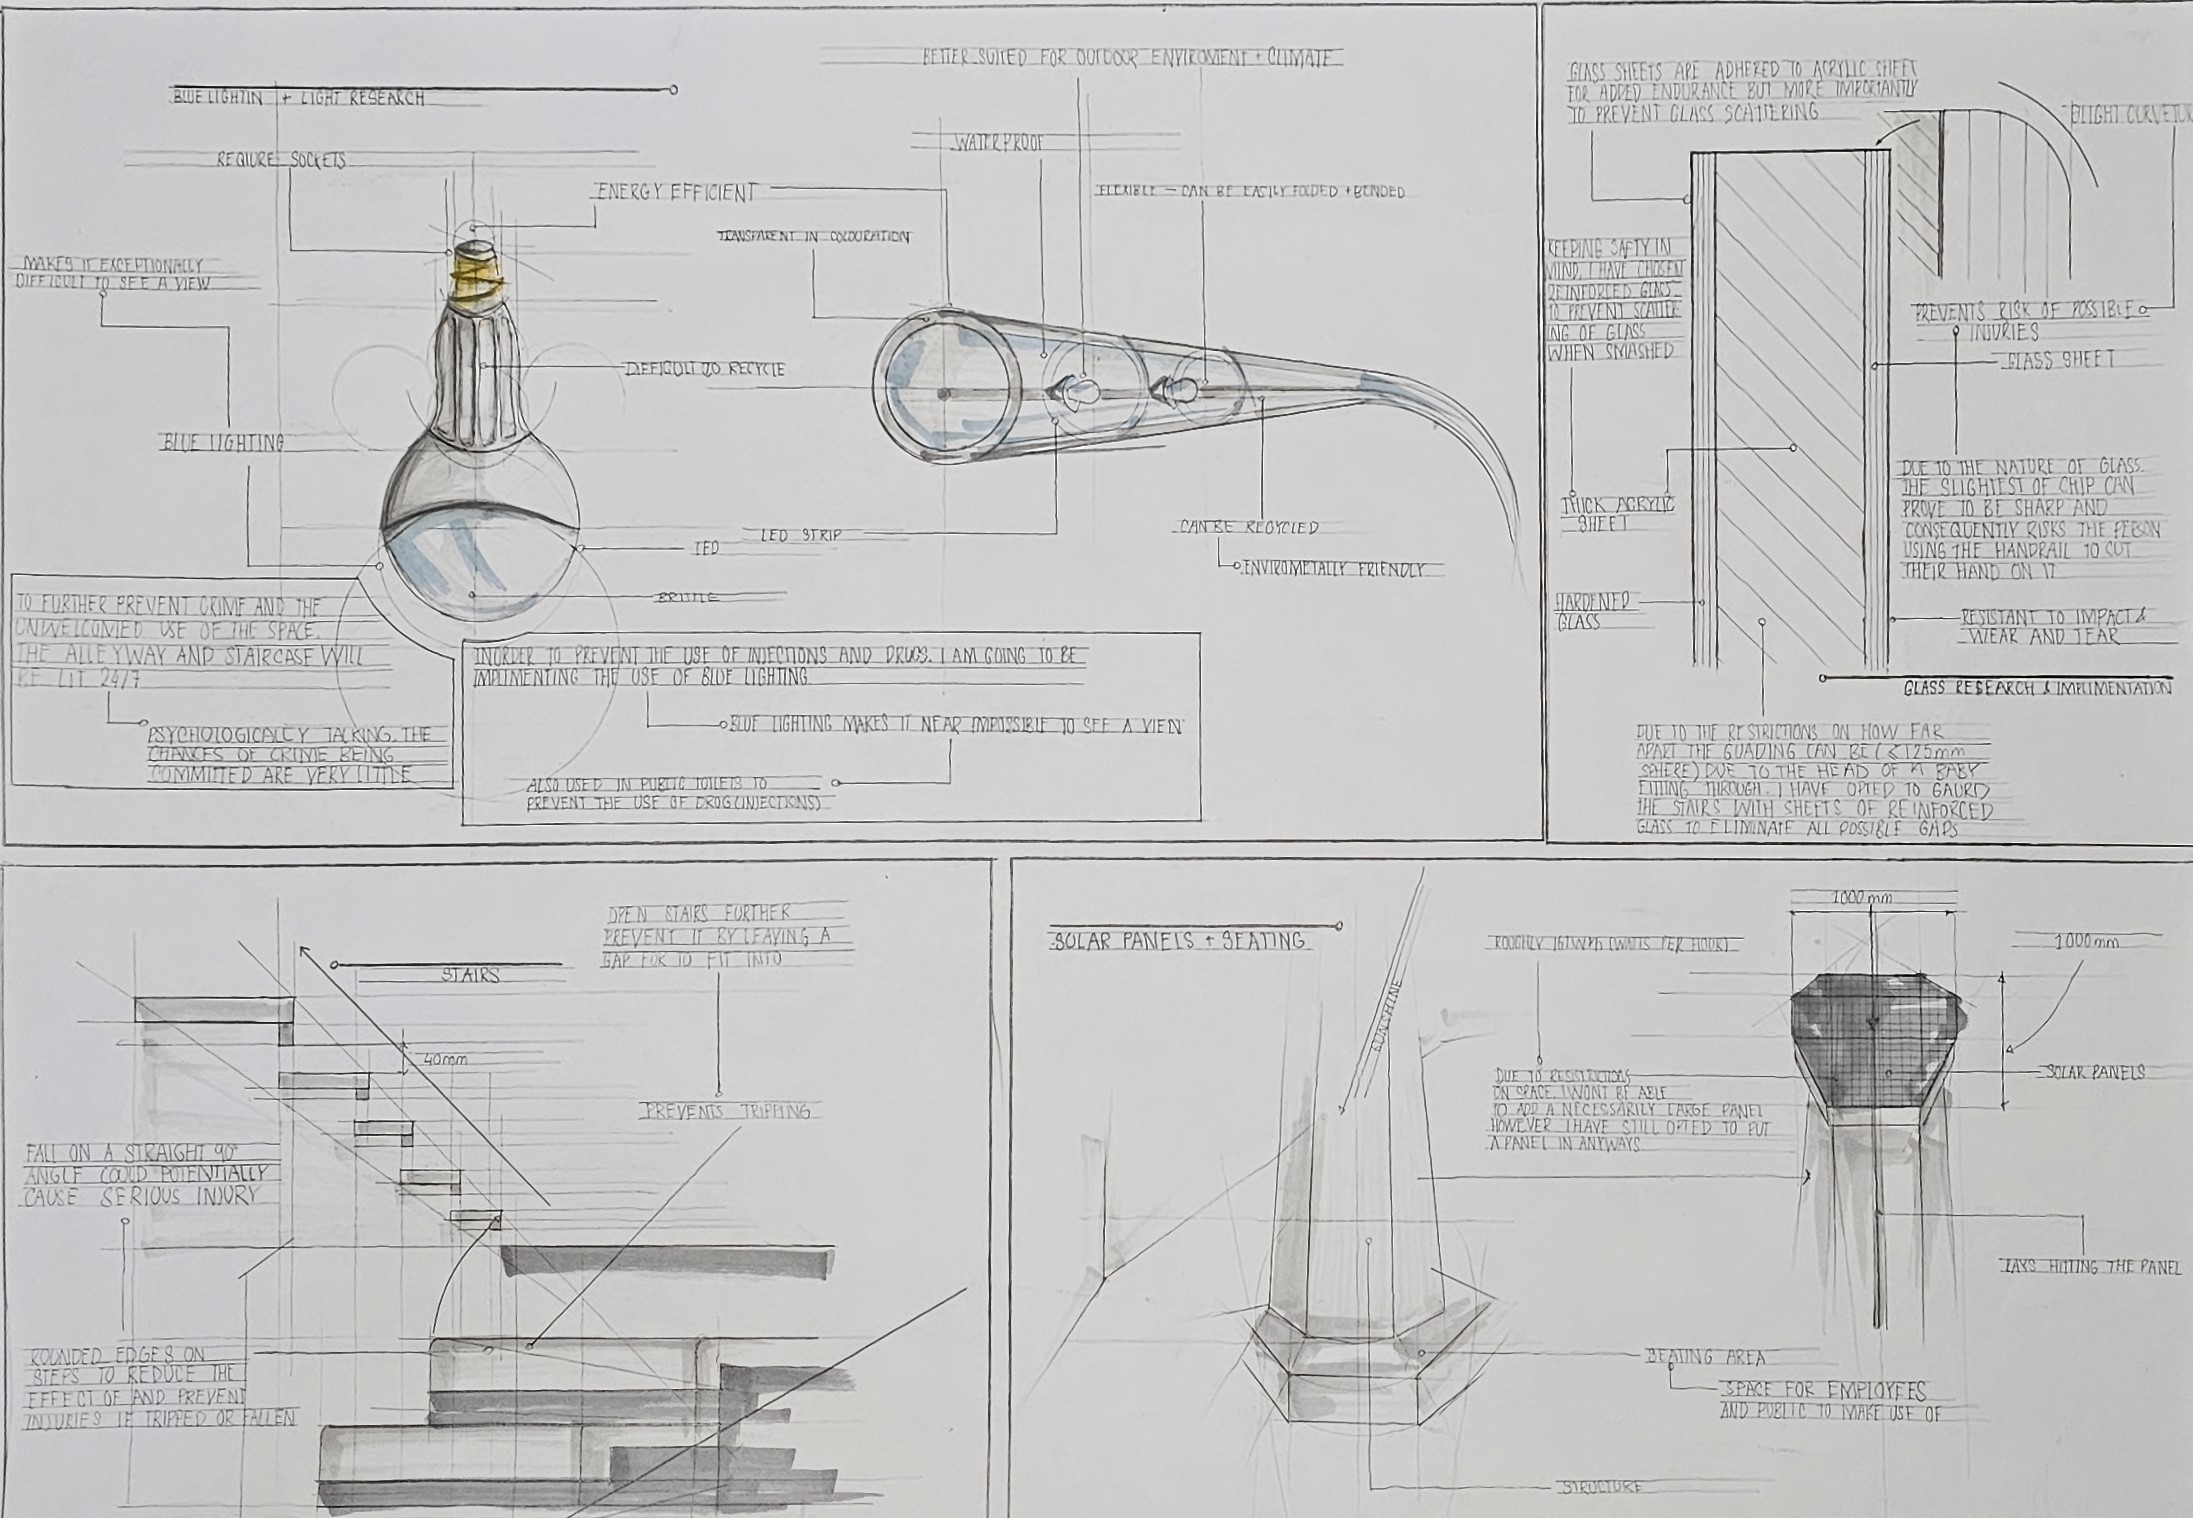 BLUE LIGHTIN + LIGHT RESEARCH
REQIURE SOCKETS
ENERGY EFFICIENT
MAKES IT EXCEPTIONALLY
DIFFICULT TO SEE A VIEW
DIFFICULT TO RECYCLE
BLUE LIGHTING
LED
BRITTLE
BETTER SUITED FOR OUTDOOR ENVIROMENT + CLIMATE
WATERPROOF
FLEXIBLE - CAN BE EASILY FOLDED + BENDED
TRANSPARENT IN COLOURATION
LED STRIP
CAN BE RECYCLED
ENVIROMETALLY FRIENDLY
TO FURTHER PREVENT CRIME AND THE
UNWELCOMED USE OF THE SPACE.
THE ALLEYWAY AND STAIRCASE WILL
BE LIT 24/7
PSYCHOLOGICALLY TALKING, THE
CHANCES OF CRIME BEING
COMMITTED ARE VERY LITTLE
INORDER TO PREVENT THE USE OF INJECTIONS AND DRUGS. I AM GOING TO BE
IMPLIMENTING THE USE OF BLUE LIGHTING
BLUE LIGHTING MAKES IT NEAR IMPOSSIBLE TO SEE A VIEN
ALSO USED IN PUBLIC TOILETS TO
PREVENT THE USE OF DRUG(INJECTIONS)
GLASS SHEETS ARE ADHERED TO ACRYLIC SHEET
FOR ADDED ENDURANCE BUT MORE IMPORTANTLY
TO PREVENT GLASS SCATTERING
SLIGHT
KEEPING SAFTY IN
MIND, I HAVE CHOSEN
REINFORCED GLASS
TO PREVENT SCATTER
ING OF GLASS
WHEN SMASHED
PREVENTS RISK OF POSSIBLE
INJURIES
GLASS SHEET
THICK ACRYLIC
SHEET
DUE TO THE NATURE OF GLASS.
THE SLIGHTEST OF CHIP CAN
PROVE TO BE SHARP AND
CONSEQUENTLY RISKS THE PERSON
USING THE HANDRAIL TO CUT
THEIR HAND ON IT
HARDENED
GLASS
RESISTANT TO IMPACT &
WEAR AND TEAR
GLASS RESEARCH & IMPLIMENTATION
DUE TO THE RESTRICTIONS ON HOW FAR
APART THE GUADING CAN BE (≤125mm
SPHERE) DUE TO THE HEAD OF A BABY
FITTING THROUGH. I HAVE OPTED TO GAURD
THE STAIRS WITH SHEETS OF REINFORCED
GLASS TO ELIMINATE ALL POSSIBLE GAPS
STAIRS
OPEN STAIRS FURTHER
PREVENT IT BY LEAVING A
GAP FOR TO FIT INTO
40mm
PREVENTS TRIPPING
FALL ON A STRAIGHT 90°
ANGLE COULD POTENTIALLY
CAUSE SERIOUS INJURY
ROUNDED EDGES ON
STEPS TO REDUCE THE
EFFECT OF AND PREVENT
INJURIES IF TRIPPED OR FALLEN
SOLAR PANELS + SEATING
SUNSHINE
ROUGHLY (WATTS PER HOUR)
1000mm
1000mm
DUE TO RESISTRICTIONS
ON SPACE. I WONT BE ABLE
TO ADD A NECESSARILY LARGE PANEL
HOWEVER I HAVE STILL OPTED TO PUT
A PANEL IN ANYWAYS
SOLAR PANELS
RAYS HITTING THE PANEL
SEATING AREA
SPACE FOR EMPLOYEES
AND PUBLIC TO MAKE USE OF
STRUCTURE